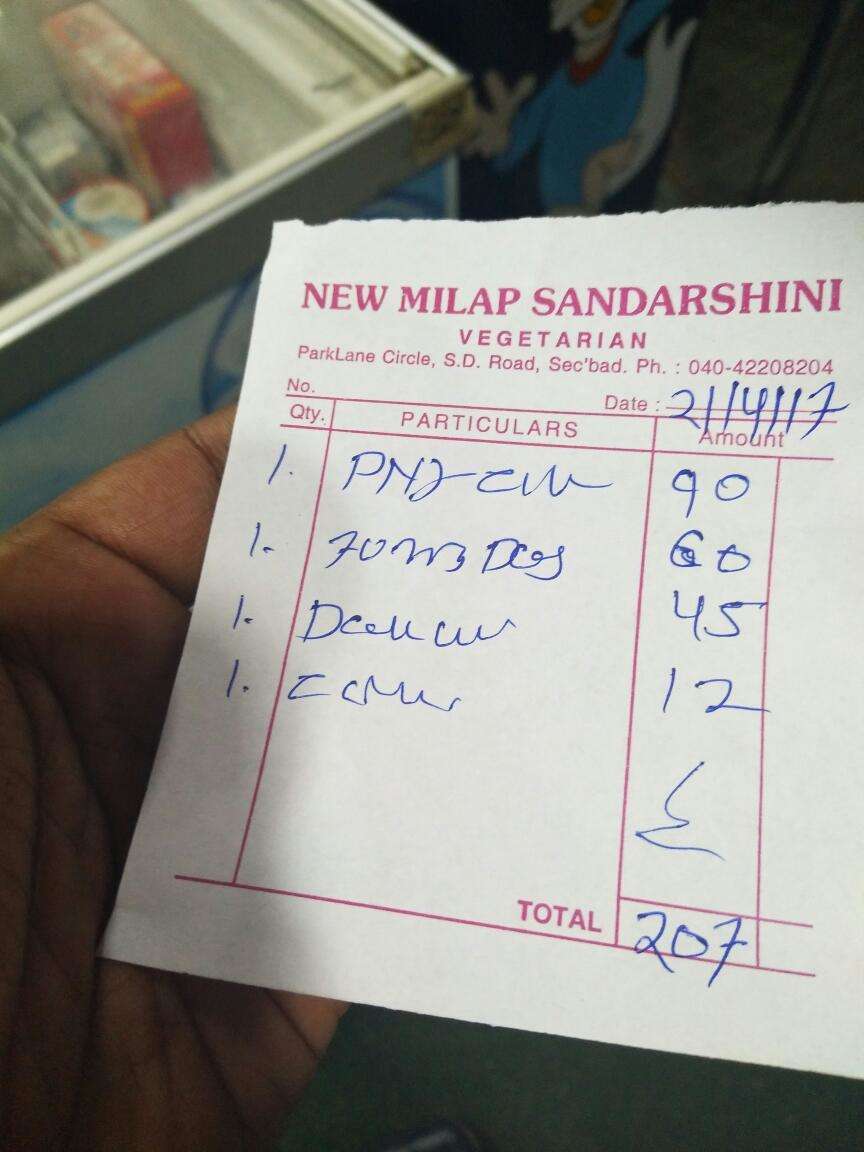 NEW MILAP SANDARSHINI
VEGETARIAN
ParkLane Circle, S.D. Road, Sec'bad. Ph. : 040-42208204
No.
Date : 21/4/17
Qty. PARTICULARS Amount
1. 90
1. 60
1. 45
1. 12
TOTAL 207